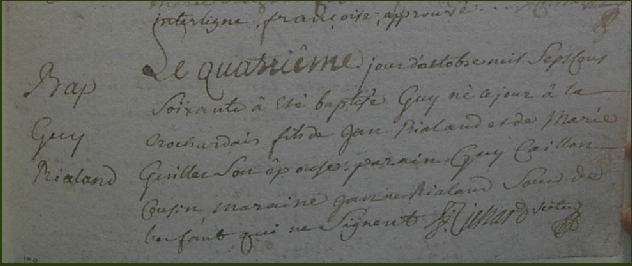 interligne, françoise, approuvé
Le quatrième jour d'octobre mil Sept Cens
Bap
Soixante à été baptisé Guy né ce jour à la
Guy
Crochardais fils de Jan Rialand et de Marie
Rialand
Guillet Son épouse. parain Guy Caillon
Cousin, maraine Janne Rialand Soeur de
l'enfant qui ne Signent